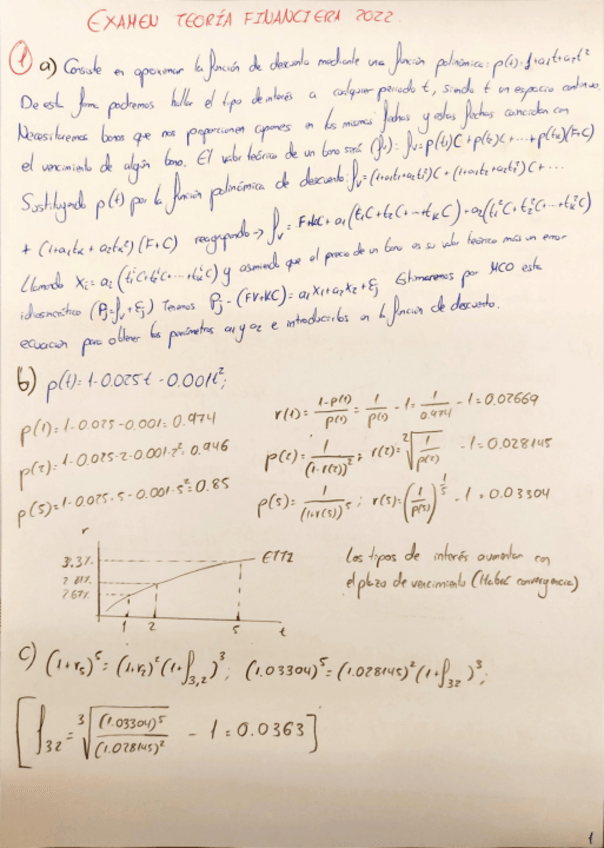 EXAMEN TEORÍA FINANCIERA 2022.
1 a) Consiste en aproximar la función de descuento mediante una función polinómica: p(t)=1+a₁t+a₂t²
De esta forma podremos hallar el tipo de interés a cualquier periodo t, siendo t un espacio continuo.
Necesitaremos bonos que nos proporcionen cupones en las mismas fechas y estas fechas coincidan con
el vencimiento de algún bono. El valor teórico de un bono será (fv): fv=p(t₁)C+p(t₂)C+...+p(tk)(F+C)
Sustituyendo p(t) por la función polinómica de descuento: fv=(1+a₁t₁+a₂t₁²)C+(1+a₁t₂+a₂t₂²)C+...
+(1+a₁tk+a₂tk²)(F+C) reagrupando→ fv=F+kC+a₁(t₁C+t₂C+...+tkC)+a₂(t₁²C+t₂²C+...+tk²C)
Llamando Xi=a₂(t₁ⁱC+t₂ⁱC+...+tkⁱC) y asumiendo que el precio de un bono es su valor teórico más un error
idiosincrático (Pj=fv+Ej) Tenemos Pj-(FV+KC)=a₁X₁+a₂X₂+Ej Estimaremos por MCO esta
ecuación para obtener los parámetros a₁ y a₂ e introducirlos en la función de descuento.
b) p(t)=1-0.025t-0.001t²;
p(1)=1-0.025-0.001=0.974 r(1)=1-p(1)/p(1)=1/p(1)-1=1/0.974-1=0.02669
p(2)=1-0.025·2-0.001·2²=0.946 p(2)=1/(1+r(2))²; r(2)=²√1/p(2) -1=0.028145
p(5)=1-0.025·5-0.001·5²=0.85 p(5)=1/(1+r(5))⁵; r(5)=(1/p(5))^1/5-1=0.03304
r
3.3%
2.81%
2.67%
ETTI
1 2 5 t
Los tipos de interés aumentan con
el plazo de vencimiento (Habrá convergencia)
c) (1+r₅)⁵=(1+r₂)²(1+f₃,₂)³; (1.03304)⁵=(1.028145)²(1+f₃₂)³;
[f₃₂=³√(1.03304)⁵/(1.028145)² -1=0.0363]
1